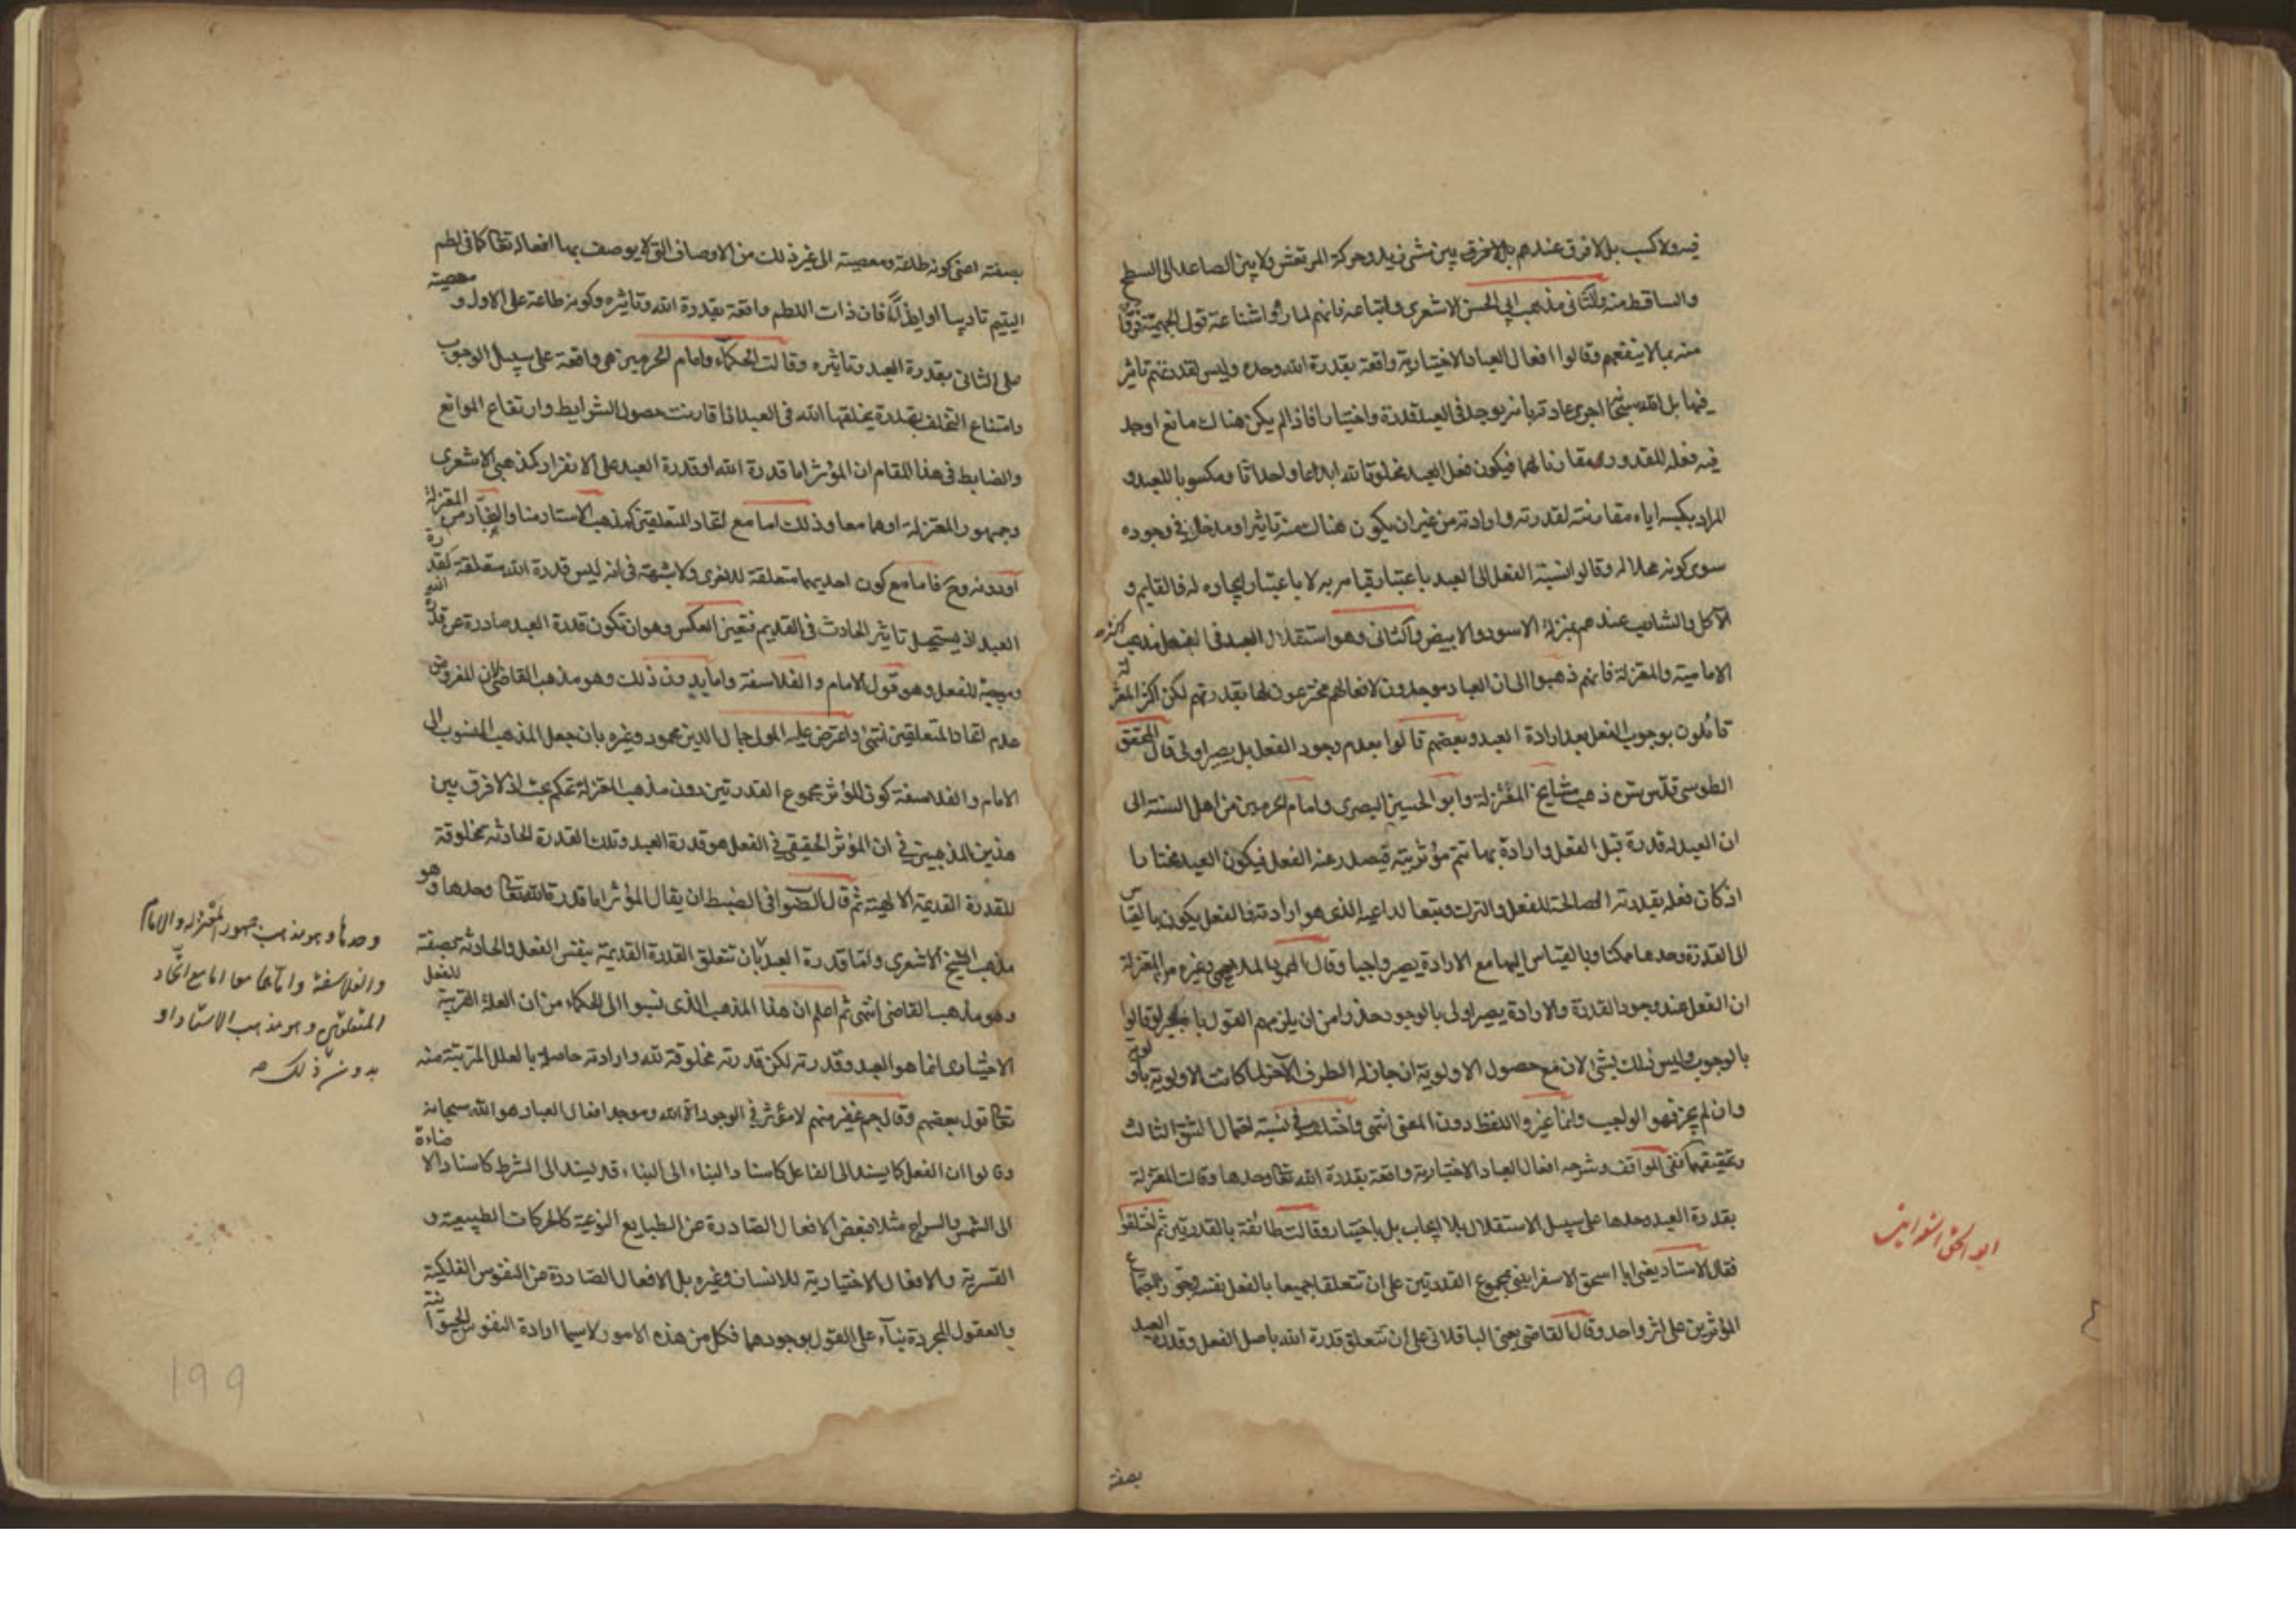 فيه ولا كسب بل لا فرق عندهم بل لا فرق بين مشى زيد وحركة المرتعش ولا بين الصاعد الى السطح
والساقط منه والثانى مذهب ابى الحسن الاشعرى واتباعه فانهم لما رأوا شناعة قول الجهمية فرقا
منه بما لا ينفعهم وقالوا افعال العباد الاختيارية واقعة بقدرة الله وحده وليس لقدرتهم تاثير
فيها بل الله سبحانه اجرى عادته بانه يوجد فى العبد قدرة واختيارا فاذا لم يكن هناك مانع اوجد
فيه فعله المقدور مقارنا لهما فيكون فعل العبد مخلوقا لله ابداعا واحداثا ومكسوبا للعبد و
المراد بكسبه اياه مقارنته لقدرته وارادته من غير ان يكون هناك منه تاثير او مدخل فى وجوده
سوى كونه محلا له وقالوا نسبة الفعل الى العبد باعتبار قيامه به لا باعتبار ايجاده له فالقايم و
الآكل والشارب عندهم بمنزلة الاسود والابيض والثانى وهو استقلال العبد فى الفعل مذهب اكثر
الامامية والمعتزلة فانهم ذهبوا الى ان العباد موجدون لافعالهم مخترعون لها بقدرتهم لكن اكثر المعتزلة
قائلون بوجوب الفعل بعد ارادة العبد وبعضهم قالوا بعدم وجود الفعل بل يصير اولى قال المحقق
الطوسى قدس سره ذهب مشايخ المعتزلة وابو الحسين البصرى وامام الحرمين من اهل السنة الى
ان العبد له قدرة قبل الفعل وارادة بها تتم مؤثريته فيصدر عنه الفعل فيكون العبد مختارا
اذ كان فعله بقدرته الصالحة للفعل والترك وتبعا لداعيه الذى هو ارادته والفعل يكون بالقياس
الى القدرة وحدها ممكنا وبالقياس اليها مع الارادة يصير واجبا وقال محمود الملاحمى وغيره من المعتزلة
ان الفعل عند وجود القدرة والارادة يصير اولى بالوجود حذرا من ان يلزمهم القول بالجبر لو قالوا
بالوجوب وليس ذلك بشئ لان مع حصول الاولوية ان جاز له الطرف الآخر لما كانت الاولوية باولوية
وان لم يجز فهو الواجب وانما غيروا اللفظ دون المعنى انتهى واختلف فى نسبة احتمال الشق الثالث
وتحقيقها ففى المواقف وشرحه افعال العباد الاختيارية واقعة بقدرة الله تعالى وحدها وقالت المعتزلة
بقدرة العبد وحدها على سبيل الاستقلال بلا ايجاب بل باختيار وقالت طائفة بالقدرتين ثم اختلفوا
فقال الاستاد يعنى ابا اسحق الاسفراينى بمجموع القدرتين على ان تتعلقا جميعا بالفعل نفسه وجوز اجتماع
المؤثرين على اثر واحد وقال القاضى يعنى الباقلانى على ان تتعلق قدرة الله باصل الفعل وقدرة العبد
بصفته
ابو اسحق اسفراينى
بصفته اعنى كونه طاعة ومعصية الى غير ذلك من الاوصاف التى لا يوصف بها افعاله تعالى كما فى لطم
اليتيم تاديبا او ايذاءً فان ذات اللطم واقعة بقدرة الله وتاثيره وكونه طاعة على الاول و معصية
على الثانى بقدرة العبد وتاثيره وقالت الحكماء وامام الحرمين هى واقعة على سبيل الوجوب
وامتناع التخلف بقدرة يخلقها الله فى العبد اذا قارنت حصول الشرايط وارتفاع الموانع
والضابط فى هذا المقام ان المؤثر اما قدرة الله او قدرة العبد على الانفراد كمذهبى الاشعرى
وجمهور المعتزلة او هما معا وذلك اما مع اتحاد المتعلقين كمذهب الاستاد منا والنجار من المعتزلة
او دونه وح فاما مع كون احديهما متعلقة للاخرى ولا شبهة فى انه ليس قدرة الله متعلقة لقدرة
العبد اذ يستحيل تاثير الحادث فى القديم فتعين العكس وهو ان تكون قدرة العبد صادرة عن قدرة الله
وموجبة للفعل وهو قول الامام والفلاسفة واما بدون ذلك وهو مذهب القاضى لان المفروض
عدم اتحاد المتعلقين انتهى واعترض عليه المولى جمال الدين محمود وغيره بان جعل المذهب المنسوب الى
الامام والفلاسفة كون المؤثر مجموع القدرتين دون مذهب المعتزلة تحكم بحت اذ لا فرق بين
هذين المذهبين فى ان المؤثر الحقيقى فى الفعل هو قدرة العبد وتلك القدرة الحادثه مخلوقة
للقدرة القديمة الالهية ثم قال الصواب فى الضبط ان يقال المؤثر اما قدرة الله تعالى وحدها وهو
مذهب الشيخ الاشعرى واما قدرة العبد بان تتعلق القدرة القديمة بنفس الفعل والحادثة بصفته
وهو مذهب القاضى انتهى ثم اعلم ان هذا المذهب الذى نسبوا الى الحكماء من ان العلة القريبة للفعل
الاختيارى انما هو العبد وقدرته لكن قدرته مخلوقة لله وارادته حاصلة بالعلل المترتبة منه
تعالى قول بعضهم وقال جم غفير منهم لا مؤثر فى الوجود الا الله وموجد افعال العباد هو الله سبحانه
وقالوا ان الفعل كما يسند الى الفاعل كاسناد البناء الى البناء قد يسند الى الشرط كاسناد الاضاءة
الى الشمس والسراج مثلا فبعض الافعال الصادرة عن الطبايع النوعية كالحركات الطبيعية و
القسرية والافعال الاختيارية للانسان وغيره بل الافعال الصادرة عن النفوس الفلكية
والعقول المجردة بناء على القول بوجودهما فكل من هذه الامور ولاسيما ارادة النفوس الحيوانية
وحدها وهو مذهب جمهور المعتزله والامام
والفلاسفة واما هما معا اما مع اتحاد
المتعلقين وهو مذهب الاستاد او
بدون ذلك صح
199